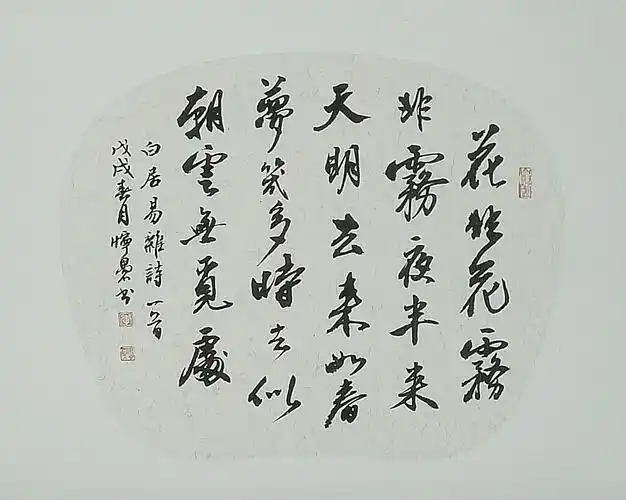 花非花霧
非霧夜半来
天明去来如春
夢幾多時去似
朝雲無覓處
白居易雜詩一首
戊戌春月 書